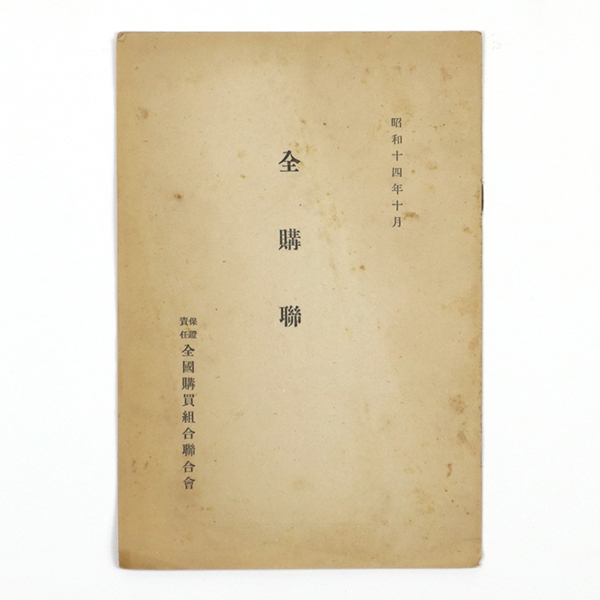 昭和十四年十月
全購聯
保證
責任
全國購買組合聯合會